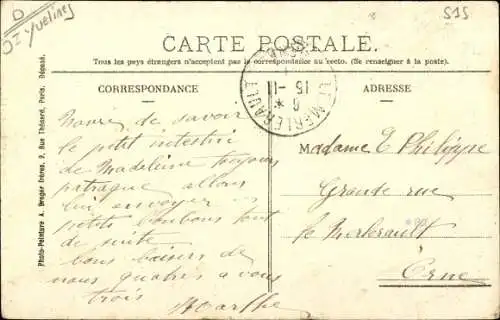 D
Yvelines
515
CARTE POSTALE
Tous les pays étrangers n'acceptent pas la correspondance au recto. (Se renseigner à la poste).
CORRESPONDANCE
ADRESSE
LE MERLERAULT
15-11
ORNE
Photo-Peinture A. Breger frères, 9, Rue Thénard, Paris. Déposé.
Navrée de savoir
le petit intestin
de Madeleine toujours
patraque allons
lui envoyer
petits bonbons tout
de suite
bons baisers de
nous quatre a vous
trois
Marthe
Madame E Philippe
Grande rue
le Merlerault
Orne